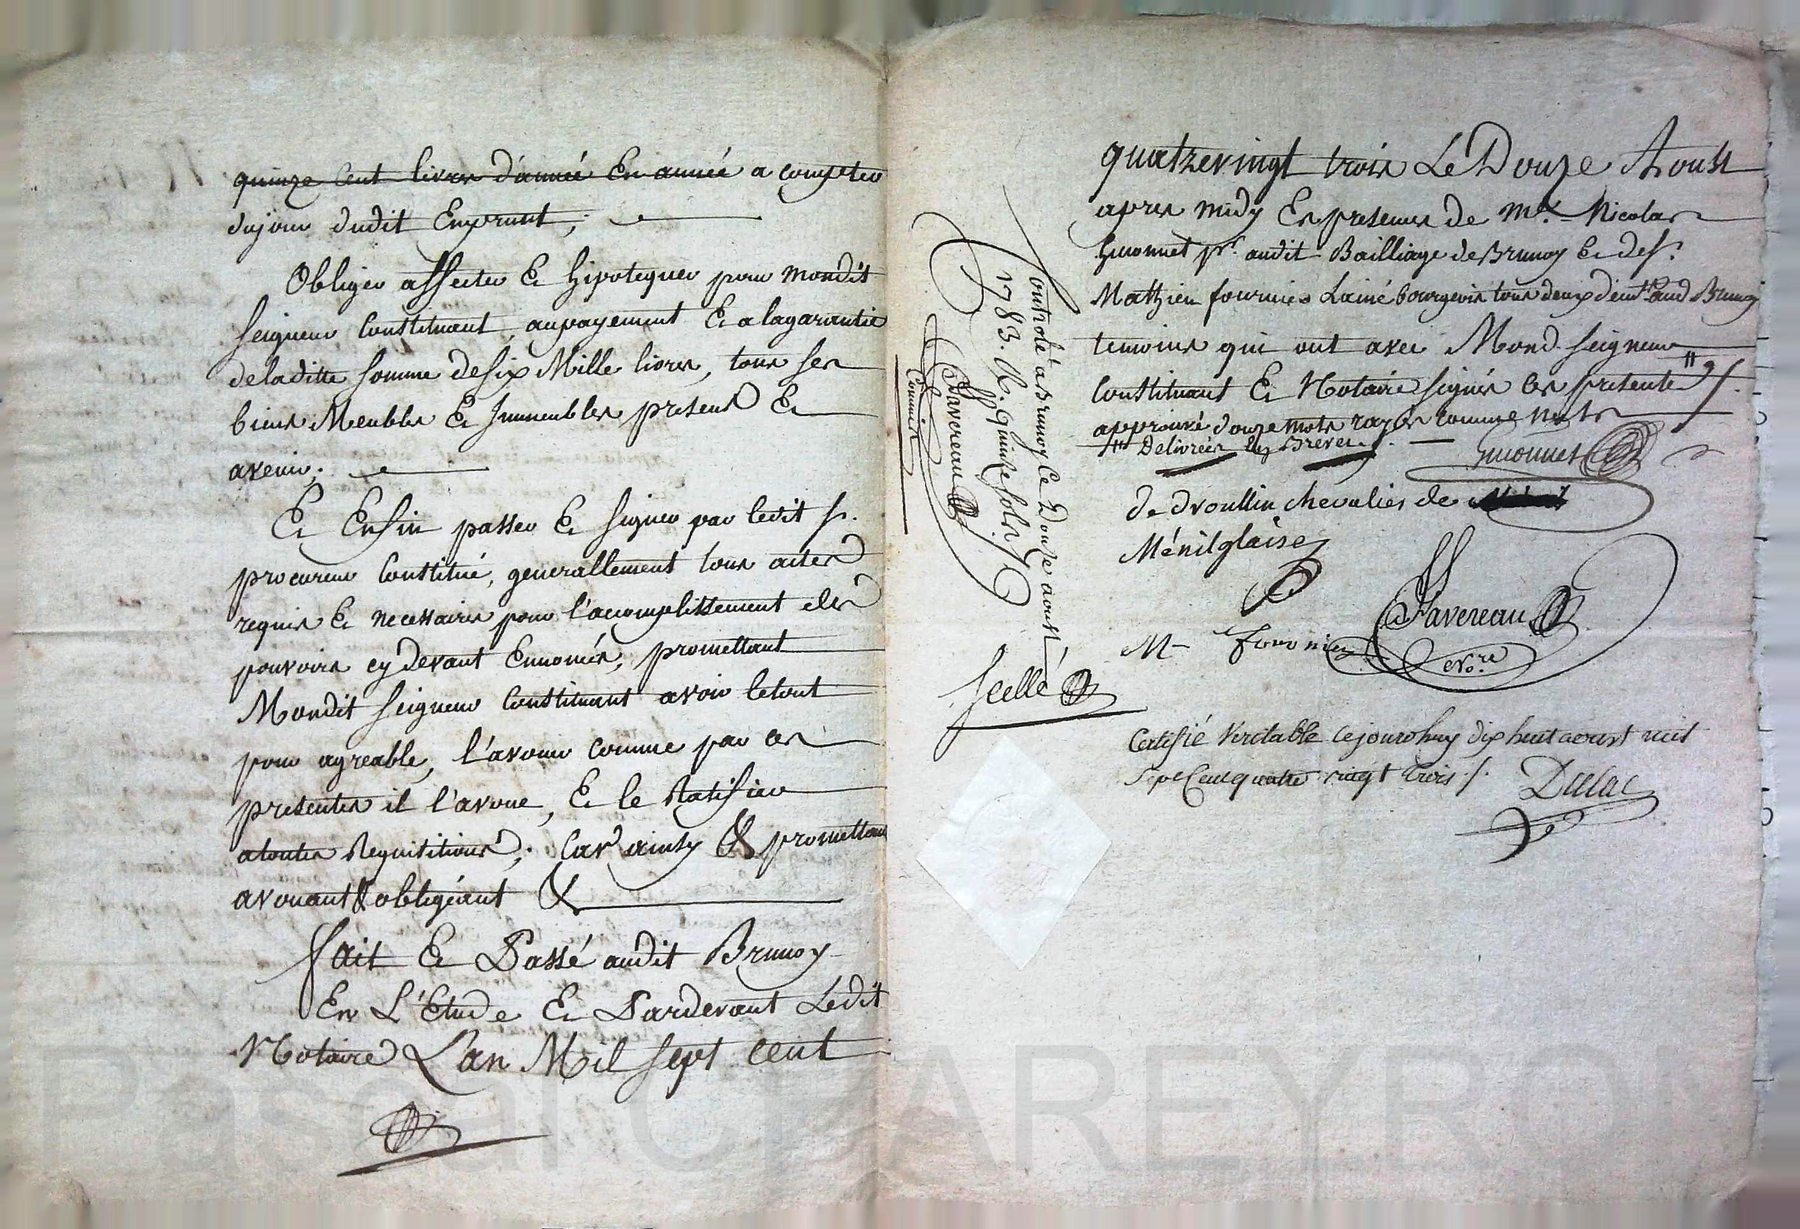 quinze Cent livres d'année En année a compter
du jour dudit Emprunt;
Obliger affecter Et hipotequer pour mondit
seigneur Constituant, aupayement Et a lagarantie
deladitte somme de six Mille livres, tous ses
biens Meubles Et Immeubles presens Et
avenir;
Et Enfin passer Et signer par ledit sr.
procureur Constitué, generallement tous actes
requis Et necessaires pour l'acomplissement des
pouvoirs cy devant Ennomés, promettant
Mondit seigneur Constituant avoir letout
pour agreable, l'avouer comme par ces
presentes il l'avoue, Et le Ratifier
atoutes Requisitions; Car ainsy &c promettant
avouant & obligéant &c
fait Et Passé audit Brunoy
En L'Etude Et Pardevant Ledit
Notaire L'an Mil sept cent
quatrevingt trois Le Douze Aoust
apres midy En presence de Me. Nicolas
Guonnet pr. audit Bailliage de Brunoy Et de sr.
Mathieu fournier Lainé bourgeois tous deux demts. aud Brunoy
temoins qui ont avec Mond. seigneur
Constituant Et Notaire signés ces presentes
approuvé douze mots rayés comme nuls
Delivrées En Brevet.
Guonnet
de droullin chevalier de
Ménilglaise
Favereau
Nore.
M fournier
Certifié Veritable cejourdhuy dix huit aoust mil
Sept Cent quatre vingt trois
Dulac
Controlé a Brunoy Ce Douze aoust
1783. R. quinze sols
Favereau
Commis
scellé
Pascal CHAREYRON